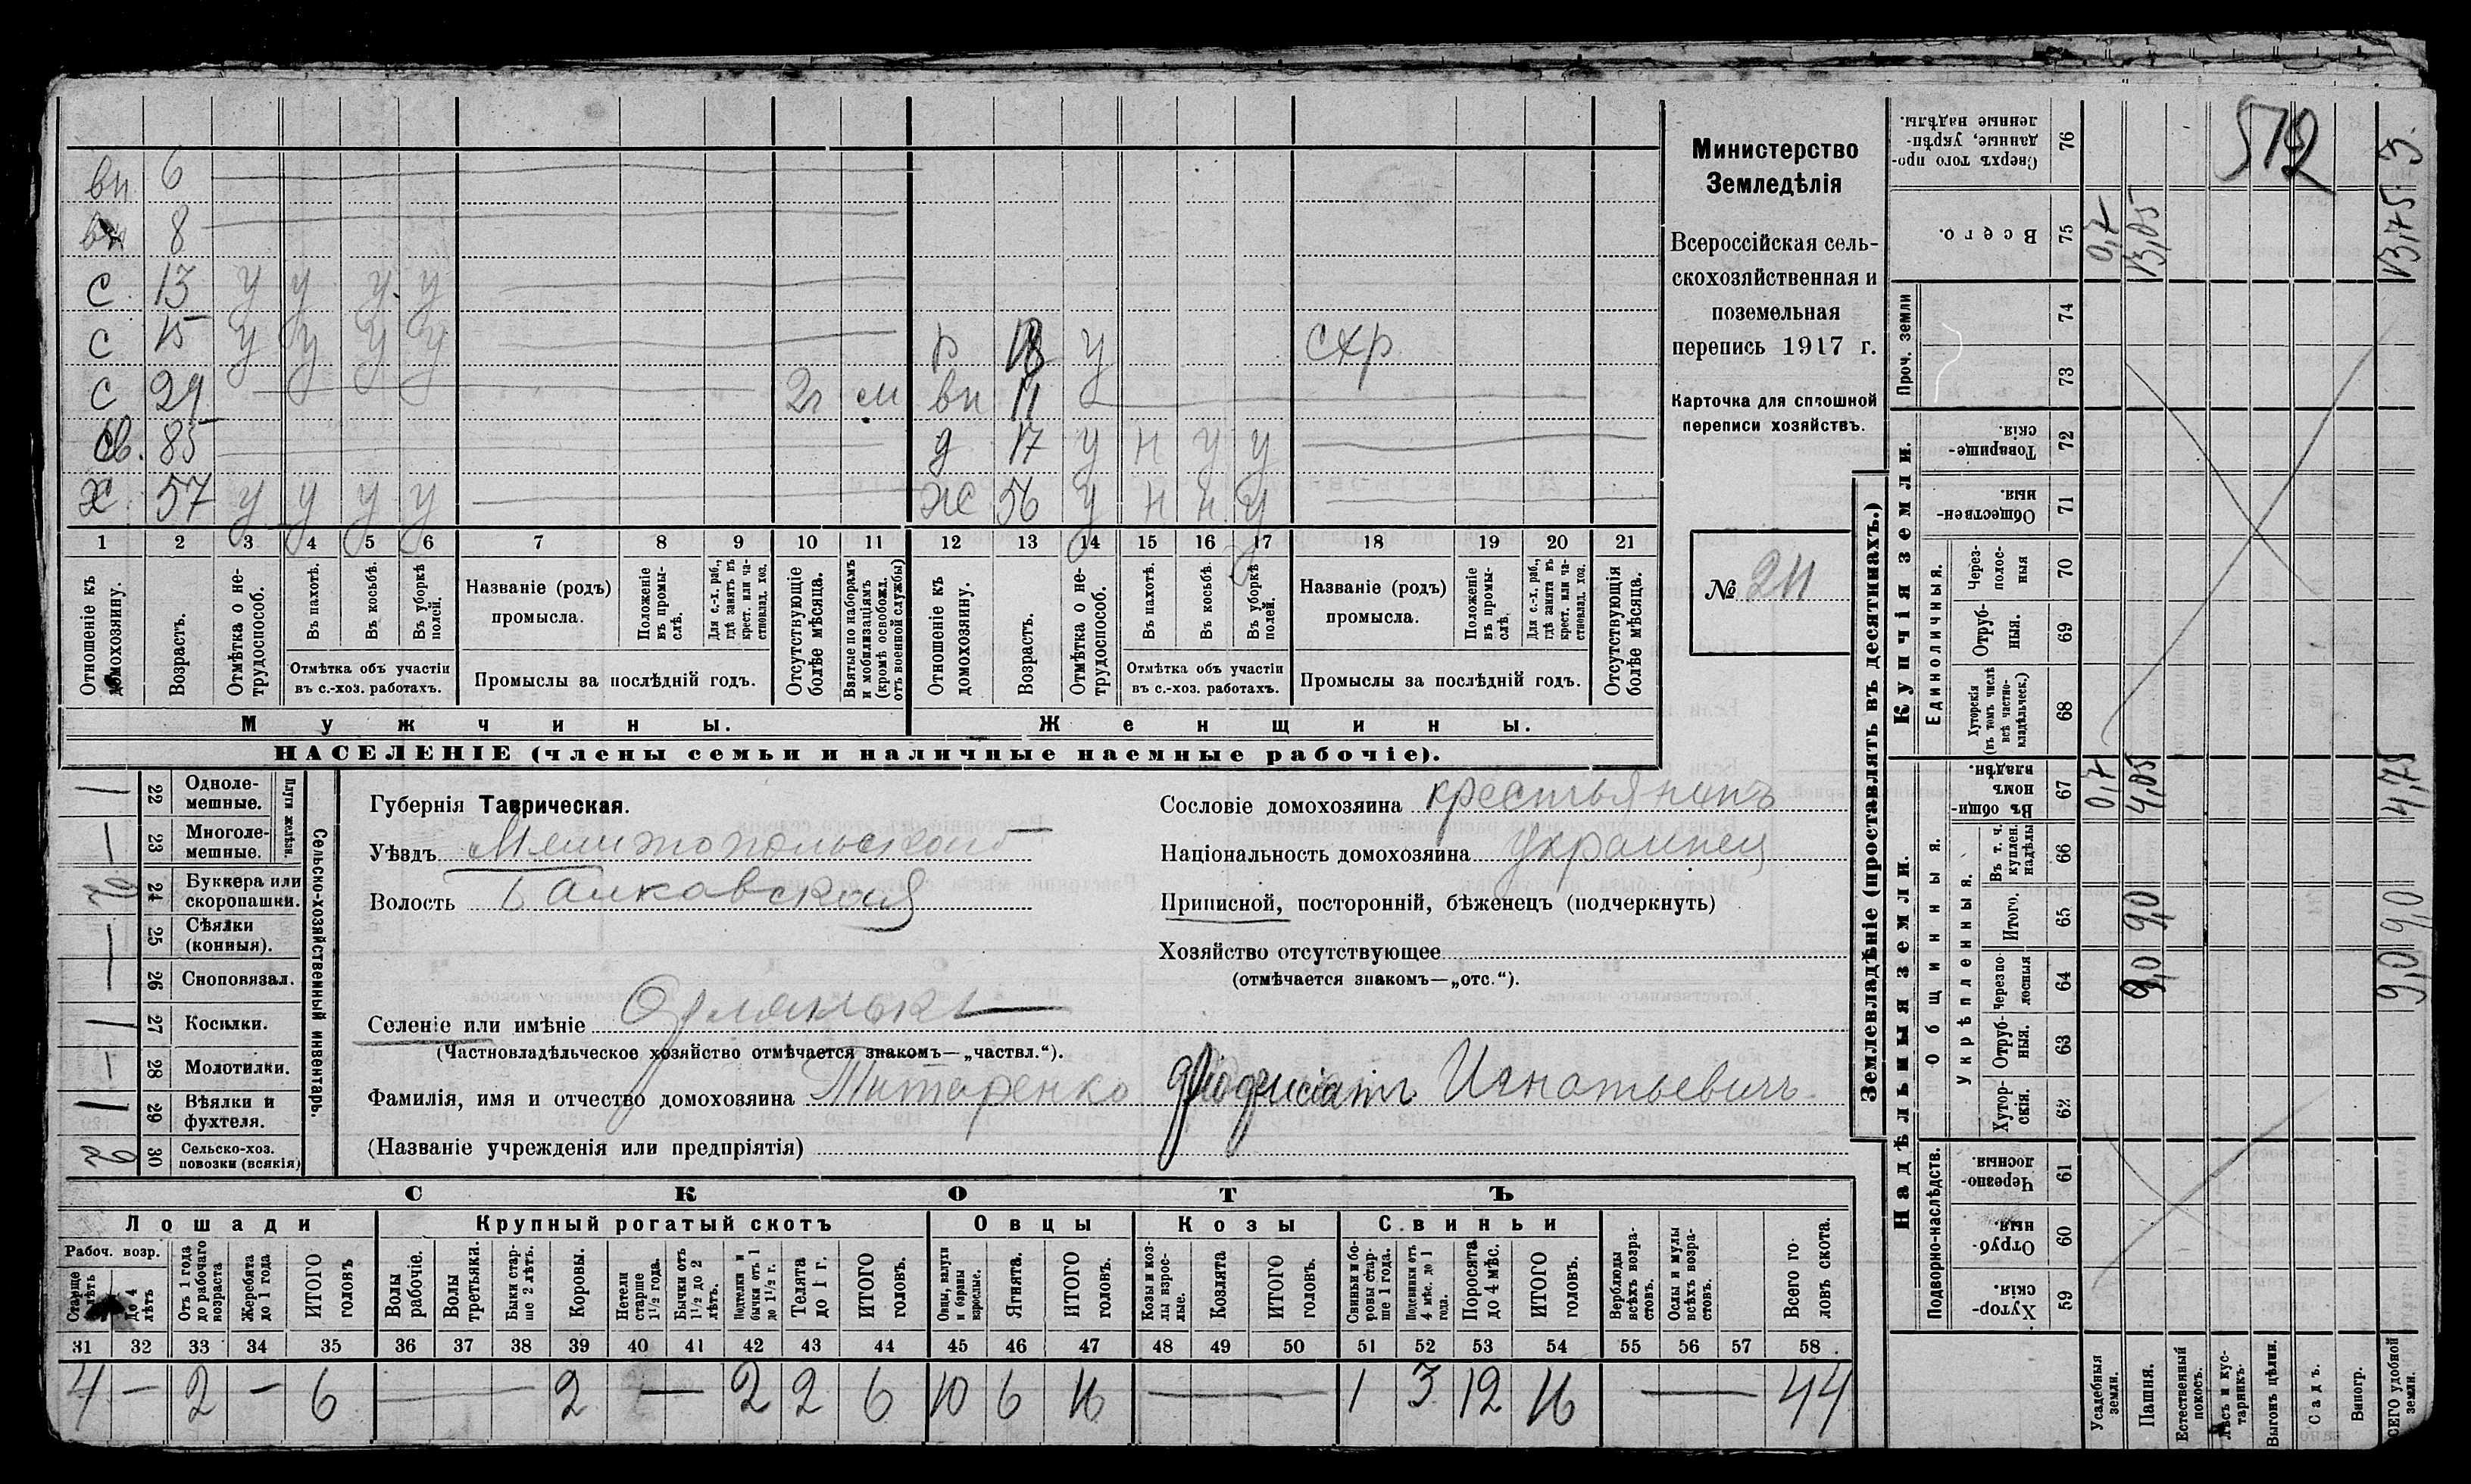 вн 6
вн 8
с 13 у у у у
с 15 у у у у р 18 у схр
с 29 2г м вн 11
св. 85 д 17 у н у у
х 57 у у у у ж 56 у н н у
1 2 3 4 5 6 7 8 9 10 11 12 13 14 15 16 17 18 19 20 21
Отношеніе къ домохозяину.
Возрастъ.
Отмѣтка о нетрудоспособ.
Въ пахотѣ.
Въ косьбѣ.
Въ уборкѣ полей.
Отмѣтка объ участіи
въ с.-хоз. работахъ.
Названіе (родъ)
промысла.
Положеніе въ промыслѣ.
Для с.-х. раб., гдѣ занятъ въ крест. или частновлад. хоз.
Промыслы за послѣдній годъ.
Отсутствующіе болѣе мѣсяца.
Взятые по наборамъ и мобилизаціямъ (кромѣ освобожд. отъ военной службы)
Отношеніе къ домохозяину.
Возрастъ.
Отмѣтка о нетрудоспособ.
Въ пахотѣ.
Въ косьбѣ.
Въ уборкѣ полей.
Отмѣтка объ участіи
въ с.-хоз. работахъ.
Названіе (родъ)
промысла.
Положеніе въ промыслѣ.
Для с.-х. раб., гдѣ занята въ крест. или частновлад. хоз.
Промыслы за послѣдній годъ.
Отсутствующія болѣе мѣсяца.
Мужчины.
Женщины.
НАСЕЛЕНІЕ (члены семьи и наличные наемные рабочіе).
Министерство
Земледѣлія
Всероссійская сель-
скохозяйственная и
поземельная
перепись 1917 г.
Карточка для сплошной
переписи хозяйствъ.
№ 211
Сельско-хозяйственный инвентарь.
Плуги желѣзн.
22 Одноле-
мешные.
23 Многоле-
мешные.
24 Буккера или
скоропашки.
25 Сѣялки
(конныя).
26 Сноповязал.
27 Косилки.
28 Молотилки.
29 Вѣялки и
фухтеля.
30 Сельско-хоз.
повозки (всякія)
2
Губернія Таврическая.
Уѣздъ Мелитопольской
Волость Балковской
Селеніе или имѣніе Орлянскъ
(Частновладѣльческое хозяйство отмѣчается знакомъ—„частвл.“).
Фамилія, имя и отчество домохозяина Титаренко Игнатьевичъ
(Названіе учрежденія или предпріятія)
Сословіе домохозяина крестьянинъ
Національность домохозяина украинец
Приписной, посторонній, бѣженецъ (подчеркнуть)
Хозяйство отсутствующее
(отмѣчается знакомъ—„отс.“).
СКОТЪ
Лошади
Крупный рогатый скотъ
Овцы
Козы
Свиньи
Рабоч. возр.
Старше 4 лѣтъ
До 4 лѣтъ
Отъ 1 года до рабочаго возраста
Жеребята до 1 года
ИТОГО головъ
Волы рабочіе.
Волы третьяки.
Быки старше 2 лѣтъ.
Коровы.
Нетели старше 1½ года.
Бычки отъ 1½ до 2 лѣтъ.
Подтелки и бычки отъ 1 до 1½ г.
Телята до 1 г.
ИТОГО головъ.
Овцы, валухи и бараны взрослые.
Ягнята.
ИТОГО головъ.
Козы и козлы взрослые.
Козлята
ИТОГО головъ.
Свиньи и боровы старше 1 года.
Подсвинки отъ 4 мѣс. до 1 года.
Поросята до 4 мѣс.
ИТОГО головъ.
Верблюды всѣхъ возрастовъ.
Ослы и мулы всѣхъ возрастовъ.
Всего головъ скота.
31 32 33 34 35 36 37 38 39 40 41 42 43 44 45 46 47 48 49 50 51 52 53 54 55 56 57 58
4 — 2 — 6 — 2 — 2 2 6 10 6 16 — 1 3 12 16 — 44
Землевладѣніе (проставлять въ десятинахъ.)
Надѣльныя земли.
Купчія земли.
Проч. земли
Подворно-наслѣдств.
Общинныя.
Укрѣпленныя.
Единоличныя.
Сверхъ того проданные, укрѣпленные надѣлы. 76
Всего. 75 0,7 13,05 13,75
74
73
Товарищескія. 72
Общественныя. 71
Черезполосныя 70
Отрубныя. 69
Хуторскія (въ томъ числѣ всѣ частновладѣльческ.) 68
Въ общинномъ владѣн. 67 0,7 4,05 4,75
Въ т. ч. куплен. надѣлы 66
Итого. 65 9,0 9,0
Черезполосныя 64 9,0 9,0
Отрубныя. 63
Хуторскія. 62
Черезполосныя. 61
Отрубныя. 60
Хуторскія. 59
Усадебныя земли.
Пашня.
Естественный покосъ.
Лѣсъ и кустарникъ.
Выгонъ цѣлин.
Садъ.
Виногр.
ВСЕГО удобной земли.
512